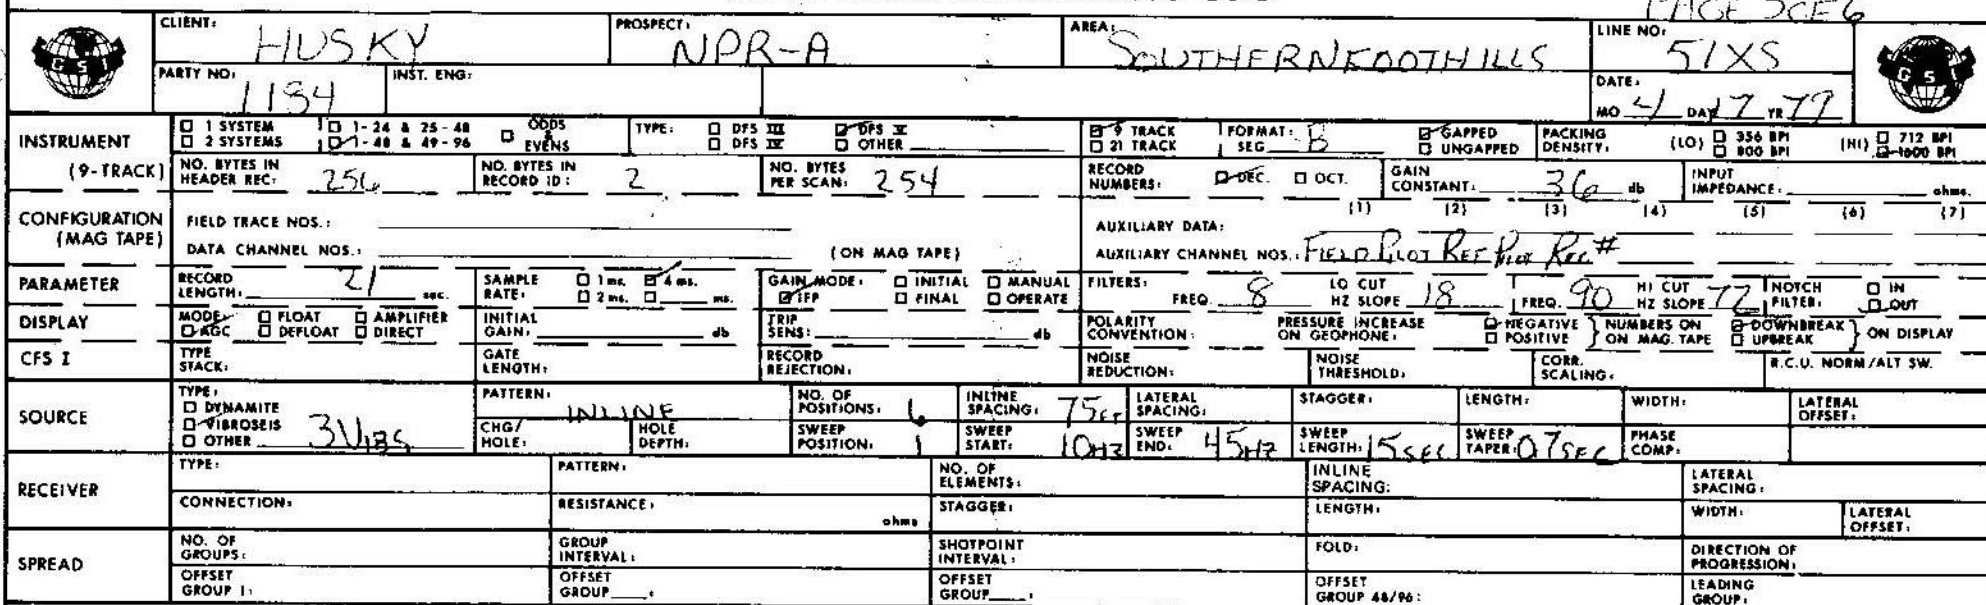 PAGE 5 OF 6
CLIENT: HUSKY PROSPECT: NPR-A AREA: SOUTHERN FOOTHILLS LINE NO: 51XS
GSI GSI
PARTY NO: 1184 INST. ENG: DATE: MO 4 DAY 17 YR 79
INSTRUMENT (9-TRACK)
1 SYSTEM 1-24 & 25-48 ODDS & EVENS TYPE: DFS III DFS V 9 TRACK FORMAT: SEG B GAPPED PACKING DENSITY: (LO) 356 BPI (HI) 712 BPI
2 SYSTEMS 1-48 & 49-96 DFS IV OTHER 21 TRACK UNGAPPED 800 BPI 1600 BPI
NO. BYTES IN HEADER REC: 256 NO. BYTES IN RECORD ID: 2 NO. BYTES PER SCAN: 254 RECORD NUMBERS: DEC. OCT. GAIN CONSTANT: 36 db INPUT IMPEDANCE: ohms.
CONFIGURATION (MAG TAPE)
FIELD TRACE NOS.: AUXILIARY DATA: (1) (2) (3) (4) (5) (6) (7)
DATA CHANNEL NOS.: (ON MAG TAPE) AUXILIARY CHANNEL NOS.: FIELD PILOT REF PILOT REC #
PARAMETER RECORD LENGTH: 21 sec. SAMPLE RATE: 1 ms. 4 ms. 2 ms. ms. GAIN MODE: INITIAL MANUAL IFP FINAL OPERATE FILTERS: FREQ. 8 LO CUT HZ SLOPE 18 FREQ. 90 HI CUT HZ SLOPE 72 NOTCH FILTER: IN OUT
DISPLAY MODE: FLOAT AMPLIFIER AGC DEFLOAT DIRECT INITIAL GAIN: db TRIP SENS: db POLARITY CONVENTION: PRESSURE INCREASE ON GEOPHONE: NEGATIVE POSITIVE NUMBERS ON MAG. TAPE DOWNBREAK UPBREAK ON DISPLAY
CFS I TYPE STACK: GATE LENGTH: RECORD REJECTION: NOISE REDUCTION: NOISE THRESHOLD: CORR. SCALING: R.C.U. NORM/ALT SW.
SOURCE TYPE: DYNAMITE VIBROSEIS OTHER 3 VIBS PATTERN: INLINE NO. OF POSITIONS: 6 INLINE SPACING: 75 FT LATERAL SPACING: STAGGER: LENGTH: WIDTH: LATERAL OFFSET:
CHG/HOLE: HOLE DEPTH: SWEEP POSITION: 1 SWEEP START: 10HZ SWEEP END: 45HZ SWEEP LENGTH: 15SEC SWEEP TAPER: 0.7SEC PHASE COMP:
RECEIVER TYPE: PATTERN: NO. OF ELEMENTS: INLINE SPACING: LATERAL SPACING:
CONNECTION: RESISTANCE: ohms STAGGER: LENGTH: WIDTH: LATERAL OFFSET:
SPREAD NO. OF GROUPS: GROUP INTERVAL: SHOTPOINT INTERVAL: FOLD: DIRECTION OF PROGRESSION:
OFFSET GROUP 1: OFFSET GROUP : OFFSET GROUP : OFFSET GROUP 48/96: LEADING GROUP: